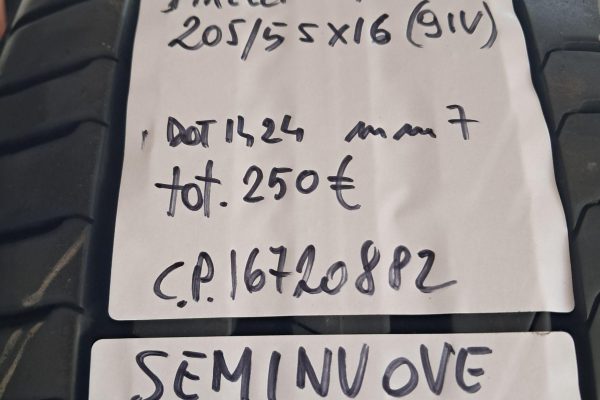 205/55X16 (91V)
DOT 1424 mm 7
tot. 250€
C.P. 16720882
SEMINUOVE